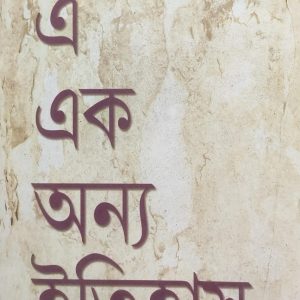 এ
এক
অন্য
ইতিহাস